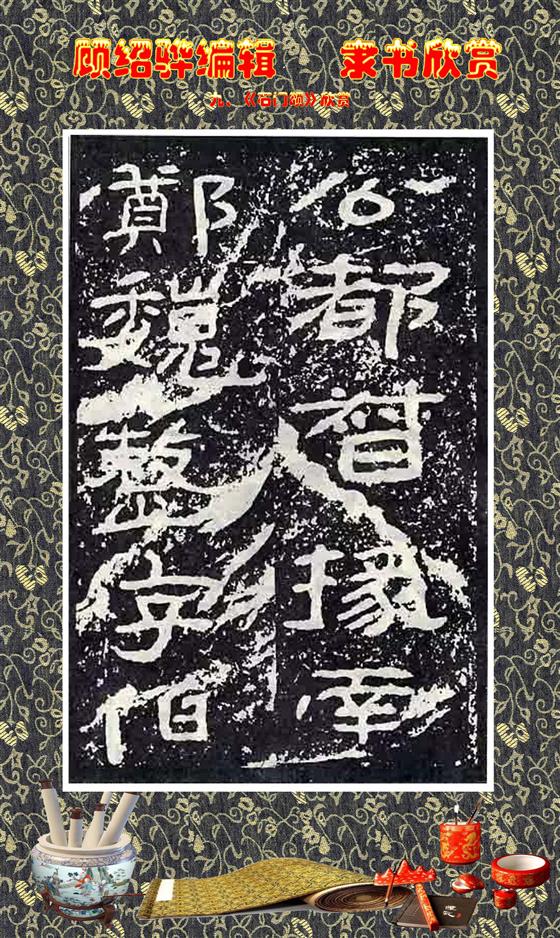 顾绍骅编辑 隶书欣赏
九、《石门颂》欣赏
公都督掾南
鄭魏整字伯